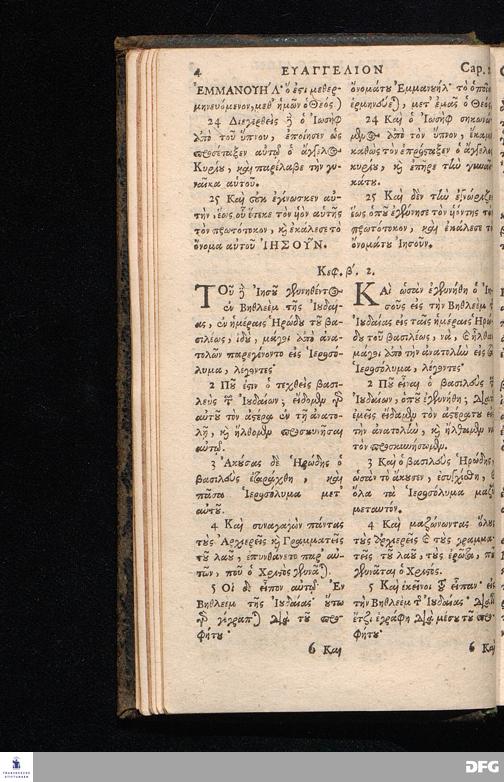 4 ΕΥΑΓΓΕΛΙΟΝ Cap. 1
ἘΜΜΑΝΟΥΗ᾽Λ· ὅ ἐστι μεθερ-
μηνευόμενον, μεθ᾽ ἡμῶν ὁ Θεός)
24 Διεγερθεὶς δὲ ὁ Ἰωσὴφ
ἀπὸ τοῦ ὕπνου, ἐποίησεν ὡς
προσέταξεν αὐτῷ ὁ ἄγγελος
Κυρίου, καὶ παρέλαβε τὴν γυ-
ναῖκα αὐτοῦ.
25 Καὶ οὐκ ἐγίνωσκεν αὐ-
τὴν, ἕως οὗ ἔτεκε τὸν υἱὸν αὐτῆς
τὸν πρωτότοκον, καὶ ἐκάλεσε τὸ
ὄνομα αὐτοῦ ἸΗΣΟΥ͂Ν.
Κεφ. β΄. 2.
ΤΟῦ δὲ Ἰησοῦ γεννηθέντος
ἐν Βηθλεὲμ τῆς Ἰουδαί-
ας, ἐν ἡμέραις Ἡρώδου τοῦ βα-
σιλέως, ἰδοὺ, μάγοι ἀπὸ ἀνα-
τολῶν παρεγένοντο εἰς Ἱεροσό-
λυμα, λέγοντες·
2 Ποῦ ἐστιν ὁ τεχθεὶς βασι-
λεὺς τῶν Ἰουδαίων; εἴδομεν γὰρ
αὐτοῦ τὸν ἀστέρα ἐν τῇ ἀνατο-
λῇ, καὶ ἤλθομεν προσκυνῆσαι
αὐτῷ.
3 Ἀκούσας δὲ Ἡρώδης ὁ
βασιλεὺς ἐταράχθη, καὶ
πᾶσα Ἱεροσόλυμα μετ᾽
αὐτοῦ.
4 Καὶ συναγαγὼν πάντας
τοὺς Ἀρχιερεῖς καὶ Γραμματεῖς
τοῦ λαοῦ, ἐπυνθάνετο παρ᾽ αὐ-
τῶν, ποῦ ὁ Χριστὸς γεννᾶται.
5 Οἱ δὲ εἶπον αὐτῷ· Ἐν
Βηθλεὲμ τῆς Ἰουδαίας· οὕτω
γὰρ γέγραπται διὰ τοῦ προ-
φήτου·
6 Καὶ
ὀνομάτου Ἐμμανουήλ· τὸ ὁποῖο
ἑρμηνεύεται, μετ᾽ ἐμᾶς ὁ Θεός
24 Καὶ ὁ Ἰωσὴφ σηκωνώ-
μενος ἀπὸ τὸν ὕπνον, ἔκαμε
καθὼς τὸν ἐπρόσταξεν ὁ ἄγγελος
κυρίου, καὶ ἐπῆρε τὴν γυναῖ-
κάτου.
25 Καὶ δὲν τὴν ἐγνώριζε
ἕως ὁποῦ ἐγέννησε τὸν υἱόντης τὸν
πρωτότοκον, καὶ ἐκάλεσε τὸ
ὀνομάτου Ἰησοῦν.
ΚΑὶ ὡσὰν ἐγεννήθη ὁ Ἰη-
σοῦς εἰς τὴν Βηθλεὲμ τ
Ἰουδαίας εἰς ταῖς ἡμέραις Ἡρώ-
δου τοῦ βασιλέως, νὰ, καὶ ἦλθαν
μάγοι ἀπὸ τὴν ἀνατολὴν εἰς
Ἱεροσόλυμα, λέγοντες·
2 Ποῦ εἶναι ὁ βασιλεὺς
Ἰουδαίων, ὁποῦ ἐγεννήθη; διατὶ
ἐμεῖς εἴδαμεν τὸν ἀστέρατου εἰς
τὴν ἀνατολὴν, καὶ ἤλθαμεν νὰ
τὸν προσκυνήσωμεν.
3 Καὶ ὁ βασιλεὺς Ἡρώδης,
ὡσὰν τὸ ἄκουσεν, ἐσυγχίσθη,
ὅλα τὰ Ἱεροσόλυμα μαζὶ
μεταυτον.
4 Καὶ μαζώνωντας ὅλους
τοὺς ἀρχιερεῖς καὶ τοὺς γραμμα-
τεῖς τοῦ λαοῦ, τοὺς ἐρώτα, ποῦ
γεννᾶται ὁ Χριστός.
5 Καὶ ἐκεῖνοι τοῦ εἶπαν· εἰς
τὴν Βηθλεὲμ τῆς Ἰουδαίας· διατὶ
ἔτζι ἐγράφη διὰ μέσου τοῦ προ-
φήτου·
6 Καὶ
FRANCKESCHE
STIFTUNGEN
DFG